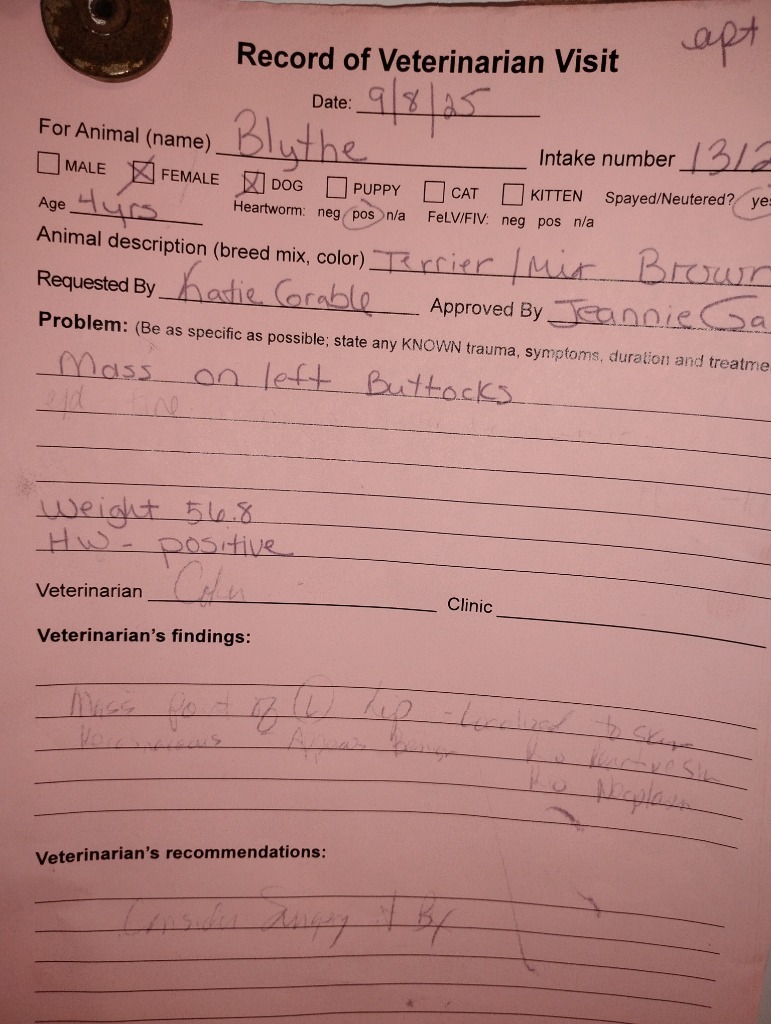 apt
Record of Veterinarian Visit
Date: 9/8/25
For Animal (name) Blythe Intake number 1312
MALE FEMALE DOG PUPPY CAT KITTEN Spayed/Neutered? yes
Age 4yrs Heartworm: neg pos n/a FeLV/FIV: neg pos n/a
Animal description (breed mix, color) Terrier/Mix Brown
Requested By Katie Corable Approved By Jeannie Ga
Problem: (Be as specific as possible; state any KNOWN trauma, symptoms, duration and treatme
Mass on left Buttocks
Weight 56.8
HW - positive
Veterinarian Clinic
Veterinarian's findings:
Mass point of (L) hip - Localized to skin
Appears Benign
Neoplasm
Veterinarian's recommendations:
Consider Surgery + Bx